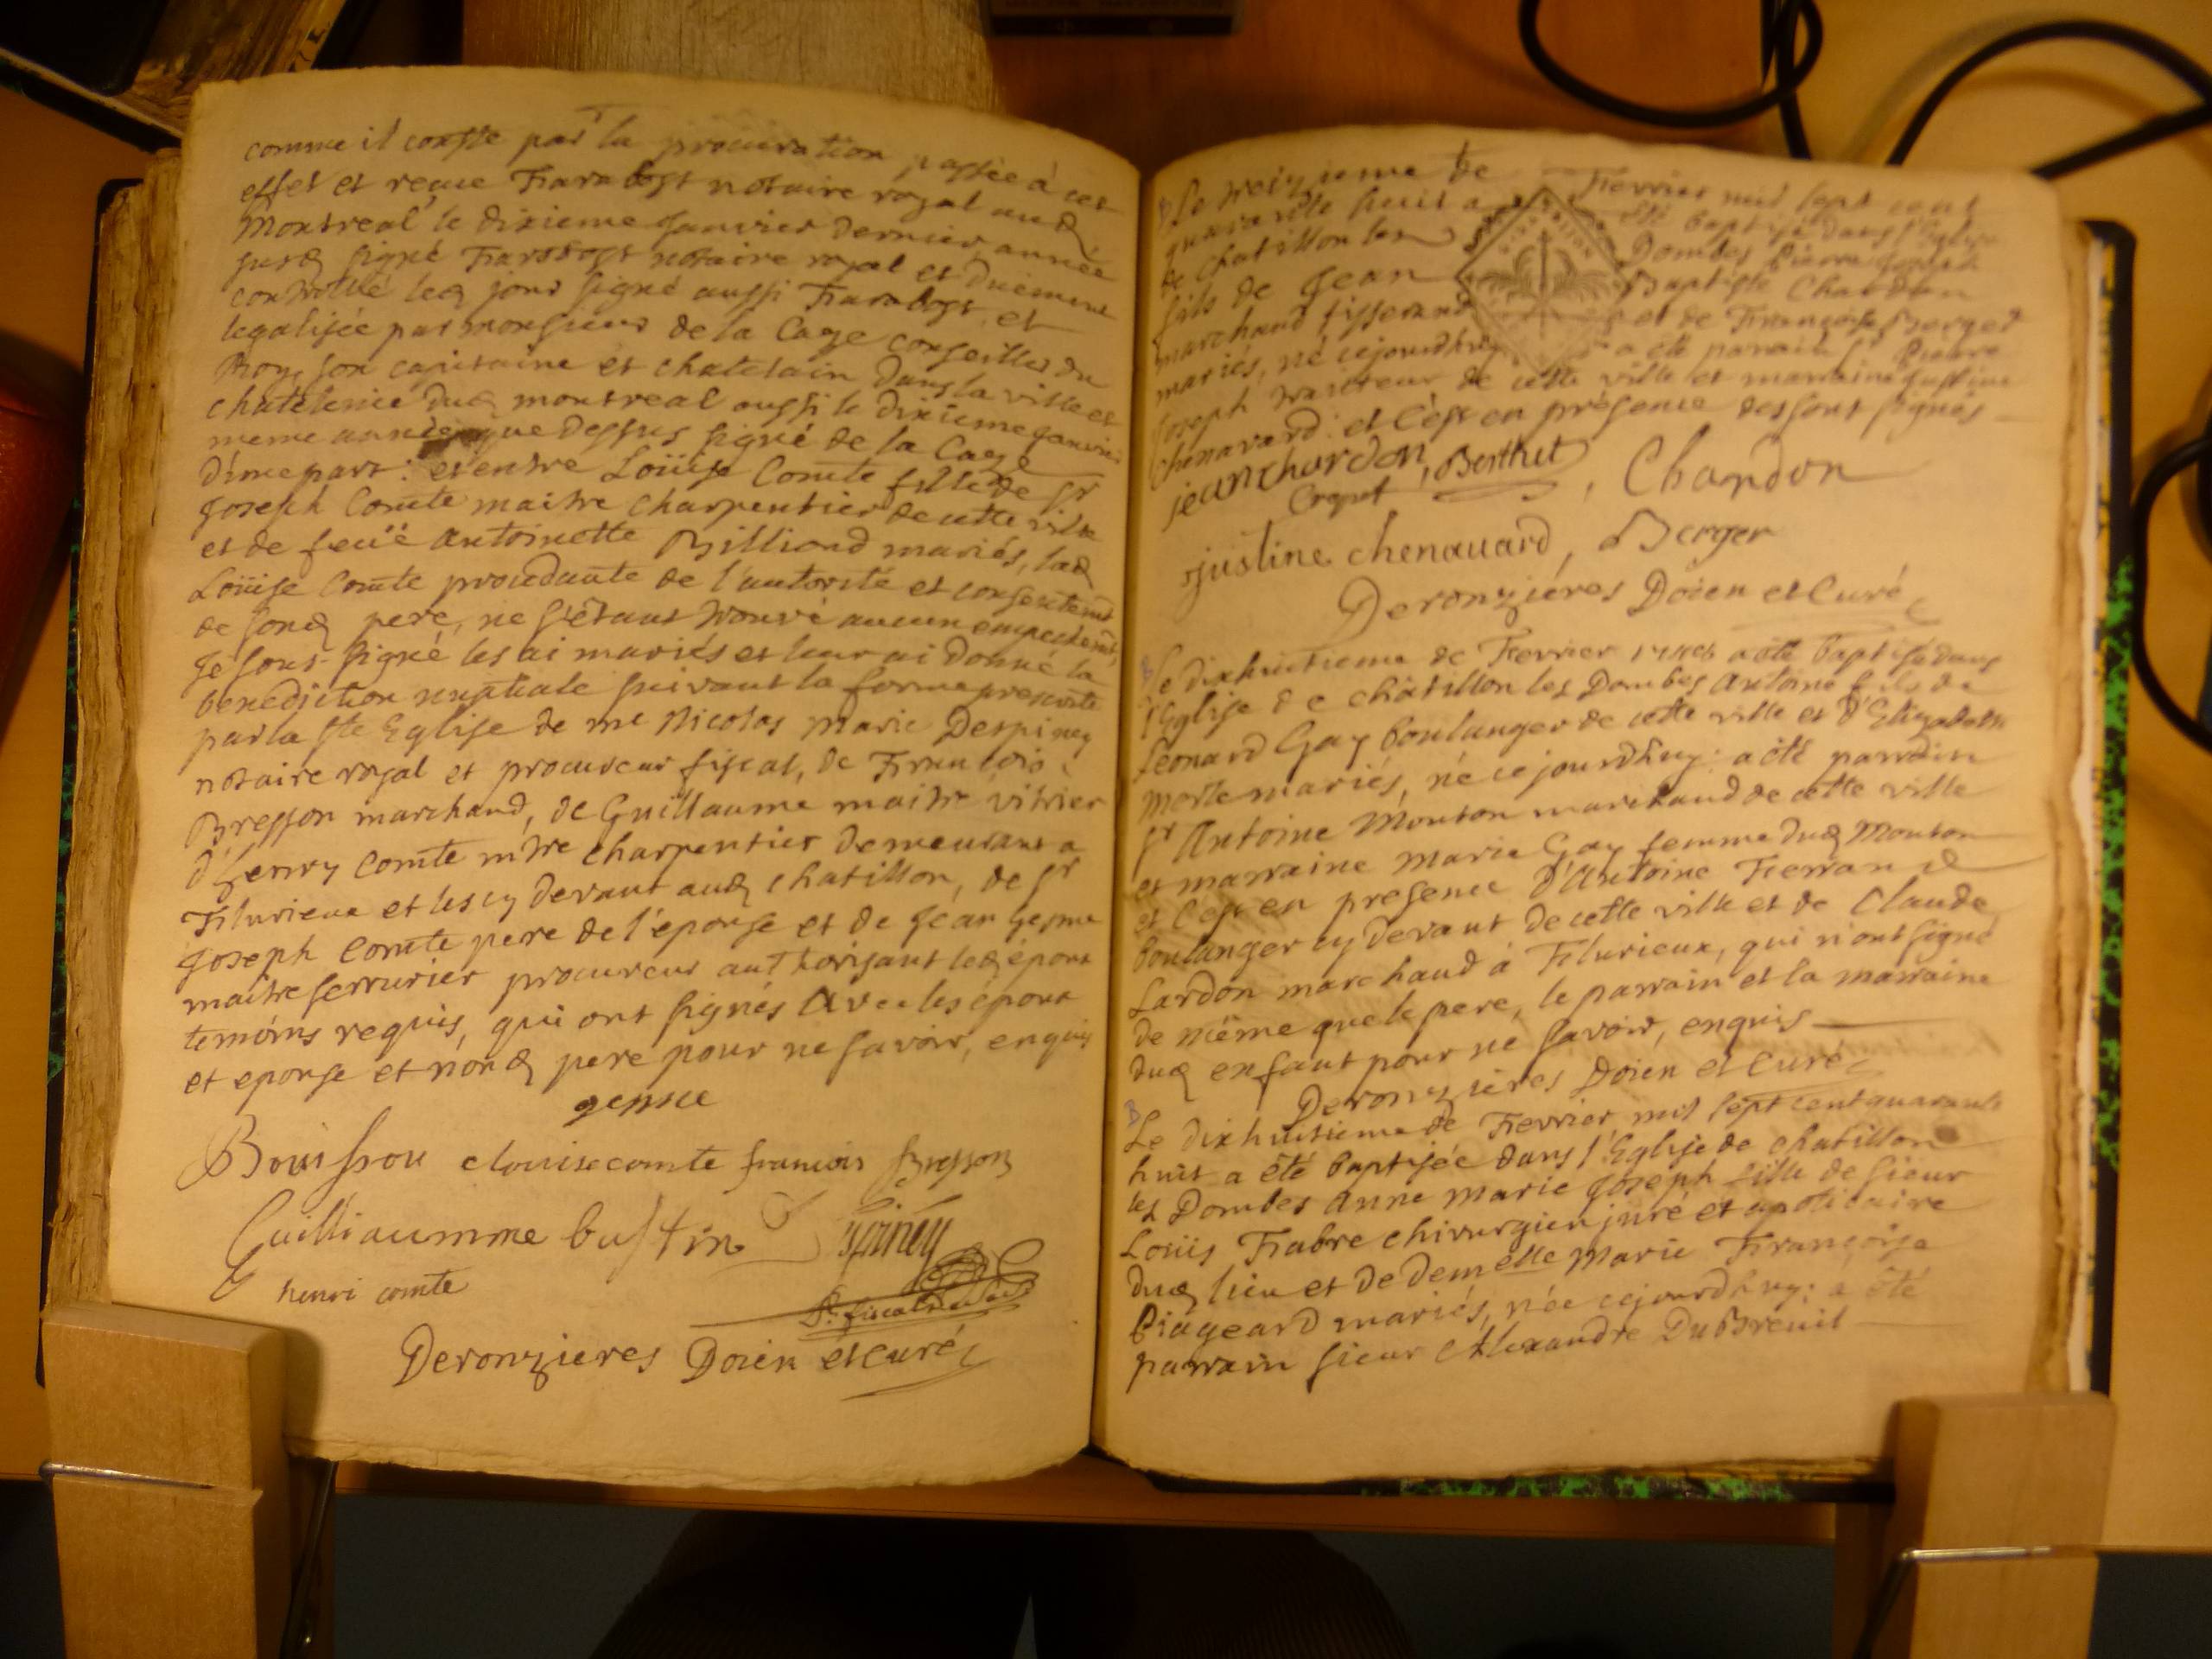 comme il conste par la procuration passée à cet
effet et reçue Farabost notaire royal aud
Montreal le dixieme Janvier dernier, année
susd signé Farabost notaire royal et duëment
controllé led jour signé aussi Farabost, et
legalisée par monsieur de la Cage conseiller du
Roy, son capitaine et chatelain dans la ville et
chatelenie dud montreal aussi le dixieme Janvier
meme année que dessus signé de la Cage
d'une part: et entre Loüise Comte fille de Sr
Joseph Comte maitre charpentier de cette ville
et de feuë Antoinette Billiond mariés, lad
Loüise Comte procedante de l'autorité et consentemt
de sond pere, ne s'étant trouvé aucun empechemt,
Je sous-signé les ai mariés et leur ai donné la
benediction nuptiale suivant la forme prescrite
par la Ste Eglise de me Nicolas Marie Despiney
notaire royal et procureur fiscal, de François
Bresson marchand, de Guillaume maitre vitrier
d'henry Comte mtre charpentier demeurant a
Flurieux et les cy devant aud chatillon, de Sr
Joseph Comte pere de l'epouse et de Jean Genne
maitre serrurier procureur authorisant led époux
temoins requis, qui ont signés avec les époux
et epouse et non d pere pour ne savoir, enquis
genne
Bouisson Louise comte francois Bresson
Guilliaumme bustin Despiney
henri comte
P. fiscal
Deronzieres Doien et Curé
Le treizieme de Fevrier mil sept cent
quarante huit a été baptisé dans l'Eglise
de Chatillon les Dombes Pierre Joseph
fils de Jean Baptiste Chardon
marchand tisserand et de Françoise Berger
mariés, né cejourdhuy a été parrain Sr Pierre
Joseph traiteur de cette ville et marraine Justine
Chenavard: et c'est en présence des sous signés
jean chardon, Berthet, Chardon
Cropet
justine chenauard, Berger
Deronziéres Doien et Curé
B
Le dixhuitieme de Fevrier 1748 a été baptisé dans
l'Eglise de châtillon les Dombes Antoine fils de
Leonard Gay boulanger de cette ville et d'Elizabeth
Morte mariés, né ce jourdhuy: a été parrain
Sr Antoine Monton marchand de cette ville
et marraine Marie Gay femme dud Monton
et c'est en presence d'Antoine Ferrand
boulanger cy devant de cette ville et de Claude
Lardon marchand à Flurieux, qui n'ont signé
de même que le pere, le parrain et la marraine
dud enfant pour ne savoir, enquis
Deronzieres Doien et Curé
B
Le dixhuitieme de Fevrier, mil sept cent quarante
huit a été baptisée dans l'Eglise de chatillon
les Dombes Anne Marie Joseph fille de sieur
Loüis Fabre chirurgien juré et apoticaire
dud lieu et de demelle Marie Françoise
Piageard mariés, née cejourdhuy: a été
parrain sieur Alexandre Du Breüil